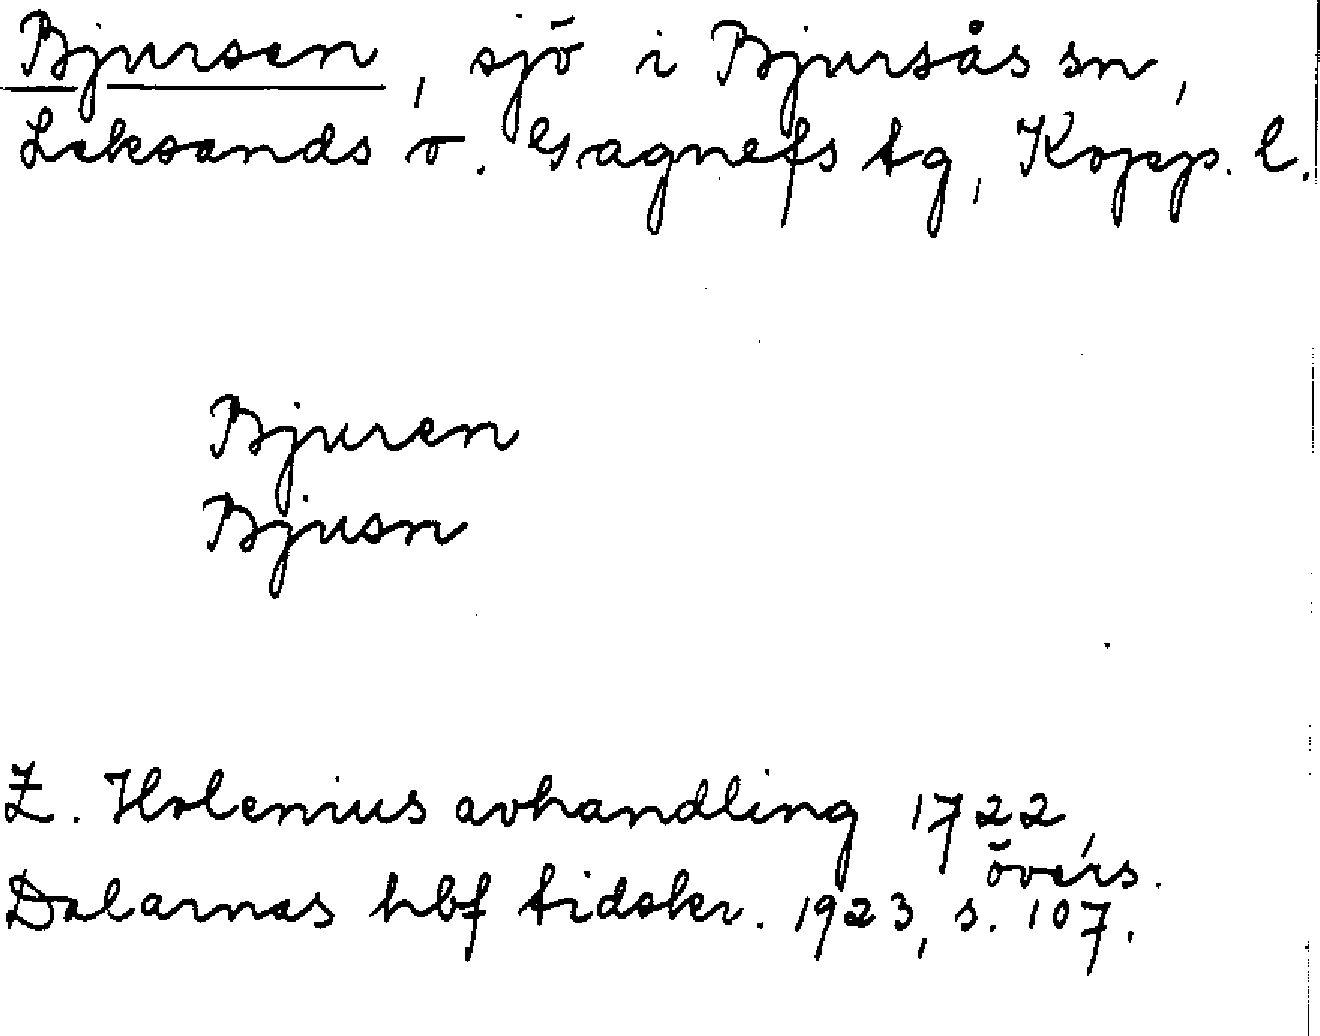 Bjursen, sjö i Bjursås sn,
Leksands o. Gagnefs tg, Kopp. l.
Bjuren
Bjusn
Z. Holenius avhandling 1722,
övers.
Dalarnas hbf tidskr. 1923, s. 107.